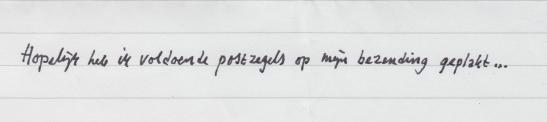 Hopelijk heb ik voldoende postzegels op mijn bezending geplakt...